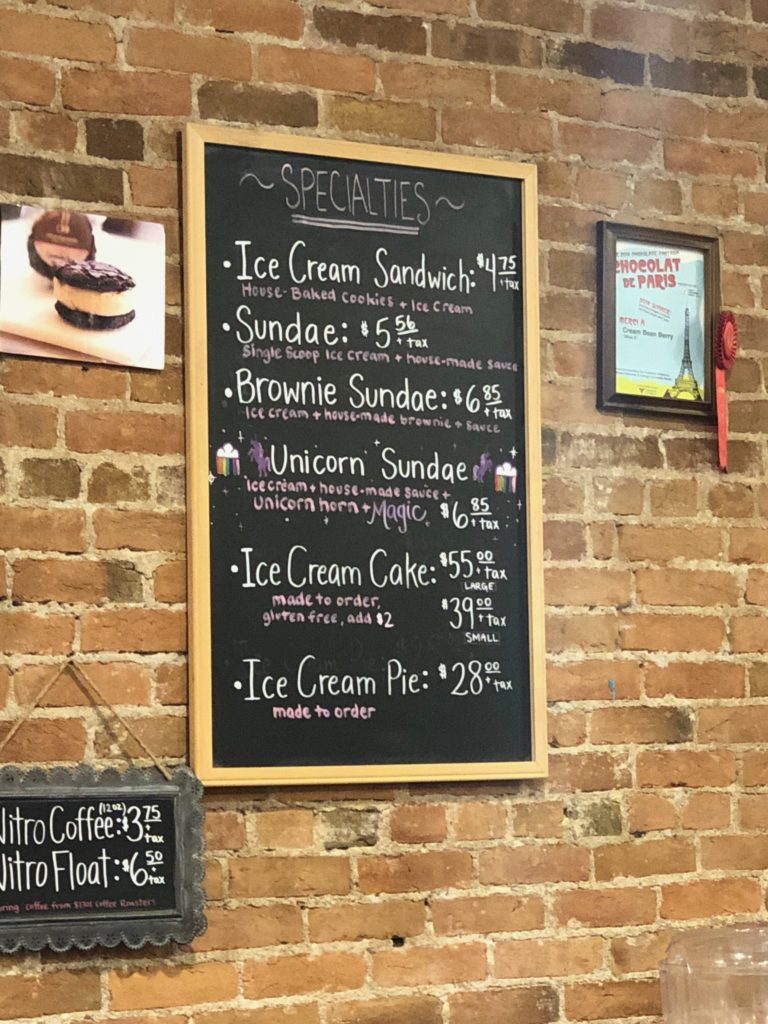 ~SPECIALTIES~
• Ice Cream Sandwich: $4.75 + tax
House-Baked cookies + Ice Cream
• Sundae: $5.56 + tax
Single Scoop Ice cream + house-made sauce
• Brownie Sundae: $6.85 + tax
Ice cream + house-made brownie + sauce
Unicorn Sundae
Ice cream + house-made sauce +
unicorn horn + Magic $6.85 + tax
• Ice Cream Cake: $55.00 + tax
LARGE
made to order,
gluten free, add $2
$39.00 + tax
SMALL
• Ice Cream Pie: $28.00 + tax
made to order
Nitro Coffee (12oz): $3.75 + tax
Nitro Float: $6.50 + tax
coffee from Coffee Roasters
CHOCOLAT
DE PARIS
Cream Bean Berry